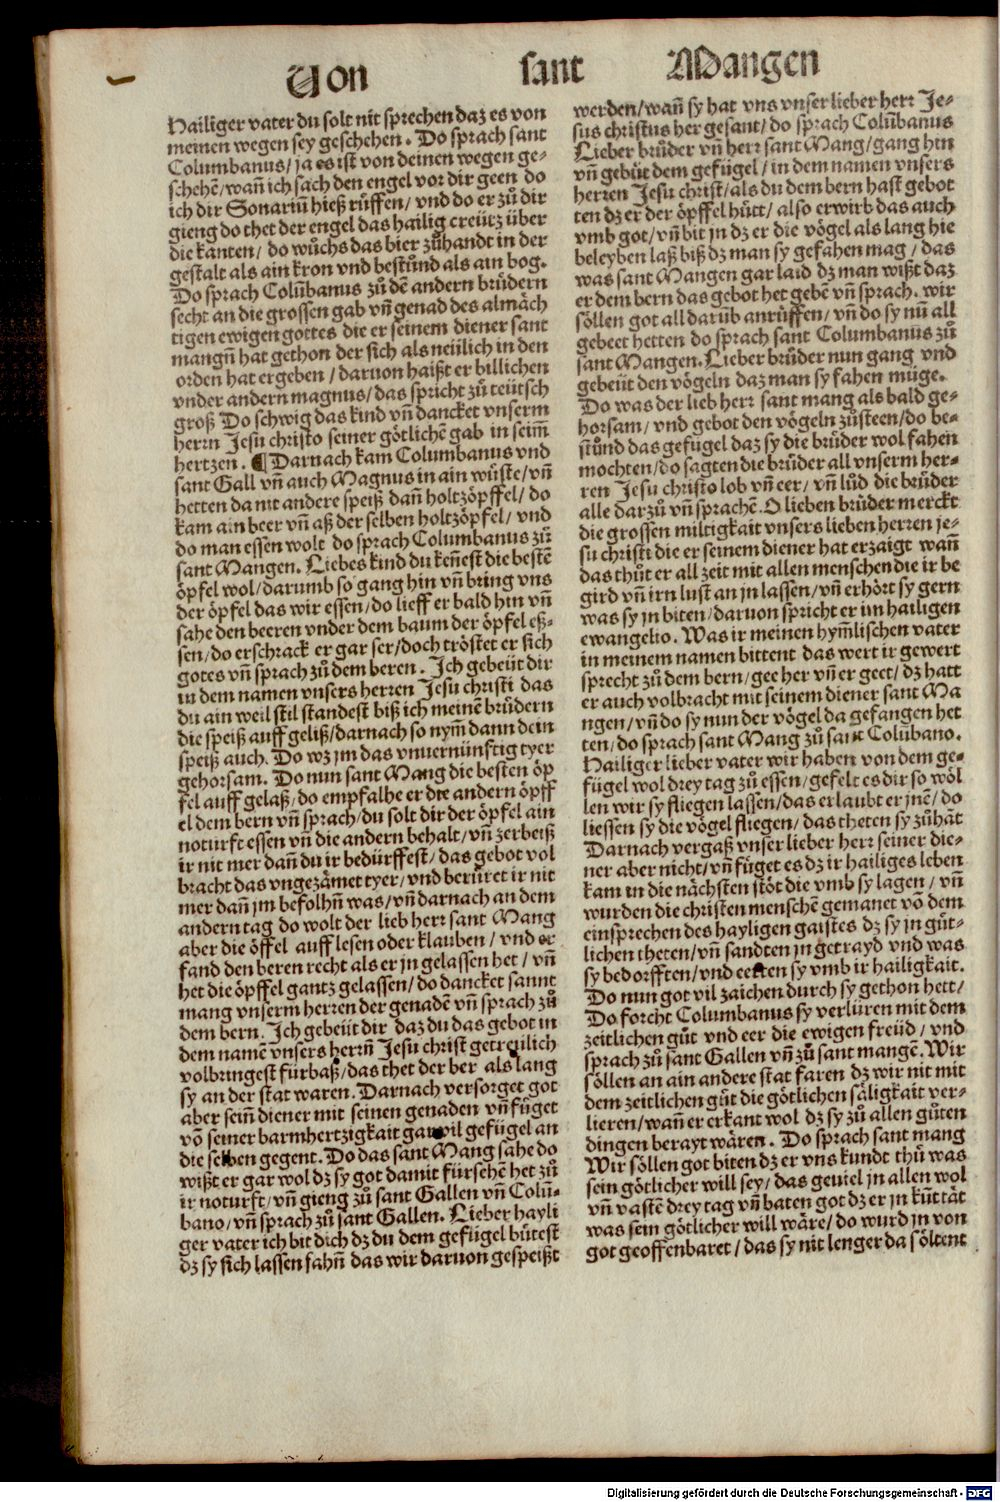 Von sant Mangen
Hailiger vater du solt nit sprechen daz es von
meinen wegen sey geschehen. Do sprach sant
Columbanus/ ja es ist von deinen wegen ge-
schehē/wañ ich sach den engel vor dir geen do
ich dir Sonariū hieß růffen/ vnd do er zů dir
gieng do thet der engel das hailig creütz über
die kanten/ do wůchs das bier zůhandt in der
gestalt als ain kron vnd bestůnd als ain bog.
Do sprach Colūbanus zů dē andern brüdern
secht an die grossen gab vñ genad des almäch
tigen ewigen gottes die er seinem diener sant
mangñ hat gethon der sich als neülich in den
orden hat ergeben / daruon haißt er billichen
vnder andern magnus/das spricht zů teütsch
groß Do schwig das kind vñ dancket vnserm
herrn Jesu christo seiner götlichē gab in seim̄
hertzen. ¶ Darnach kam Columbanus vnd
sant Gall vñ auch Magnus in ain wüste/vñ
hetten da nit andere speiß dañ holtzöpffel/ do
kam ain beer vñ aß der selben holtzöpfel/ vnd
do man essen wolt do sprach Columbanus zů
sant Mangen. Liebes kind du keñest die bestē
öpfel wol/darumb so gang hin vñ bring vns
der öpfel das wir essen/do lieff er bald hin vñ
sahe den beeren vnder dem baum der öpfel eß-
sen/do erschrack er gar ser/doch tröstet er sich
gotes vñ sprach zů dem beren. Ich gebeüt dir
in dem namen vnsers herren Jesu christi das
du ain weil stil standest biß ich meinē brüdern
die speiß auff geliß/darnach so nym̄ dann dein
speiß auch. Do wz jm das vnuernünftig tyer
gehorsam. Do nun sant Mang die besten öp
fel auff gelaß/do empfalhe er die andern öpff
el dem bern vñ sprach/du solt dir der öpfel ain
noturft essen vñ die andern behalt/vñ zerbeiß
ir nit mer dañ du ir bedürffest/das gebot vol
bracht das vngezämet tyer/vnd berüret ir nit
mer dañ jm befolhñ was/vñ darnach an dem
andern tag do wolt der lieb herr sant Mang
aber die öffel auff lesen oder klauben/ vnd er
fand den beren recht als er jn gelassen het / vñ
het die öpffel gantz gelassen/do dancket sannt
mang vnserm herren der genadē vñ sprach zů
dem bern. Ich gebeüt dir daz du das gebot in
dem namē vnsers herrñ Jesu christ getreülich
volbringest fürbaß/das thet der ber als lang
sy an der stat waren. Darnach versorget got
aber seiñ diener mit seinen genaden vñ füget
vō seiner barmhertzigkait gar vil gefügel an
die selben gegent. Do das sant Mang sahe do
wißt er gar wol dz sy got damit fürsehē het zů
ir noturft/vñ gieng zů sant Gallen vñ Colū-
bano/vñ sprach zů sant Gallen. Lieber hayli
ger vater ich bit dich dz du dem gefügel bütest
dz sy sich lassen fahñ das wir daruon gespeißt
werden/wañ sy hat vns vnser lieber herr Je-
sus christus her gesant/do sprach Colūbanus
Lieber brůder vñ herr sant Mang/gang hin
vñ gebüt dem gefügel/in dem namen vnsers
herren Jesu christ/als du dem bern hast gebot
ten dz er der öpffel hütt/ also erwirb das auch
vmb got/vñ bit jn dz er die vögel als lang hie
beleyben laß biß dz man sy gefahen mag / das
was sant Mangen gar laid dz man wißt daz
er dem bern das gebot het gebē vñ sprach. wir
söllen got all darüb anrůffen/vñ do sy nū all
gebeet hetten do sprach sant Columbanus zů
sant Mangen. Lieber brůder nun gang vnd
gebeüt den vögeln daz man sy fahen müge.
Do was der lieb herr sant mang als bald ge-
horsam/ vnd gebot den vögeln zůsteen/do be-
stůnd das gefügel daz sy die brüder wol fahen
mochten/do sagten die brüder all vnserm her-
ren Jesu christo lob vñ eer/ vñ lůd die brüder
alle darzů vñ sprachē. O lieben brüder merckt
die grossen miltigkait vnsers lieben herren je-
su christi die er seinem diener hat erzaigt wañ
das thůt er all zeit mit allen menschen die ir be
gird vñ irn lust an jn lassen/vñ erhört sy gern
was sy jn biten/daruon spricht er im hailigen
ewangelio. Was ir meinen hym̄lischen vater
in meinem namen bittent das wert ir gewert
sprecht zů dem bern/gee her vñ er geet/ dz hatt
er auch volbracht mit seinem diener sant Ma
ngen/vñ do sy nun der vögel da gefangen het
ten/do sprach sant Mang zů sant Colūbano.
Hailiger lieber vater wir haben von dem ge-
fügel wol drey tag zů essen/gefelt es dir so wöl
len wir sy fliegen lassen/das erlaubt er jnē/ do
liessen sy die vögel fliegen/das theten sy zůhāt
Darnach vergaß vnser lieber herr seiner die-
ner aber nicht/vñ füget es dz ir hailiges leben
kam in die nächsten stöt die vmb sy lagen/ vñ
wurden die christen menschē gemanet vō dem
einsprechen des hayligen gaistes dz sy in gůt-
lichen theten/vñ sandten jn getrayd vnd was
sy bedorfften/vnd eerten sy vmb ir hailigkait.
Do nun got vil zaichen durch sy gethon hett/
Do forcht Columbanus sy verlüren mit dem
zeitlichen gůt vnd eer die ewigen freüd / vnd
sprach zů sant Gallen vñ zů sant mangē. Wir
söllen an ain andere stat faren dz wir nit mit
dem zeitlichen gůt die götlichen säligkait ver-
lieren/wañ er erkant wol dz sy zů allen gůten
dingen berayt wären. Do sprach sant mang
Wir söllen got biten dz er vns kundt thů was
sein götlicher will sey/ das geuiel in allen wol
vñ vastē drey tag vñ baten got dz er jn küt tät
was sein götlicher will wäre/do wurd jn von
got geoffenbaret/das sy nit lenger da söltent
Digitalisierung gefördert durch die Deutsche Forschungsgemeinschaft - DFG